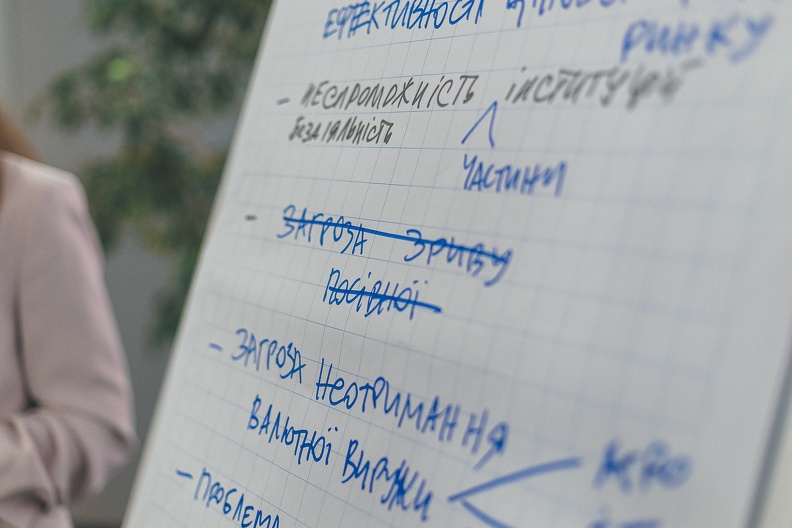 ЕФЕКТИВНОСТІ
РИНКУ
– НЕСПРОМОЖНІСТЬ ІНСТИТУЦІЙ
БЕЗДІЯЛЬНІСТЬ
ЧАСТИНИ
– ЗАГРОЗА ЗРИВУ
ПОСІВНОЇ
– ЗАГРОЗА НЕОТРИМАННЯ
ВАЛЮТНОЇ ВИРУЧКИ
– ПРОБЛЕМА